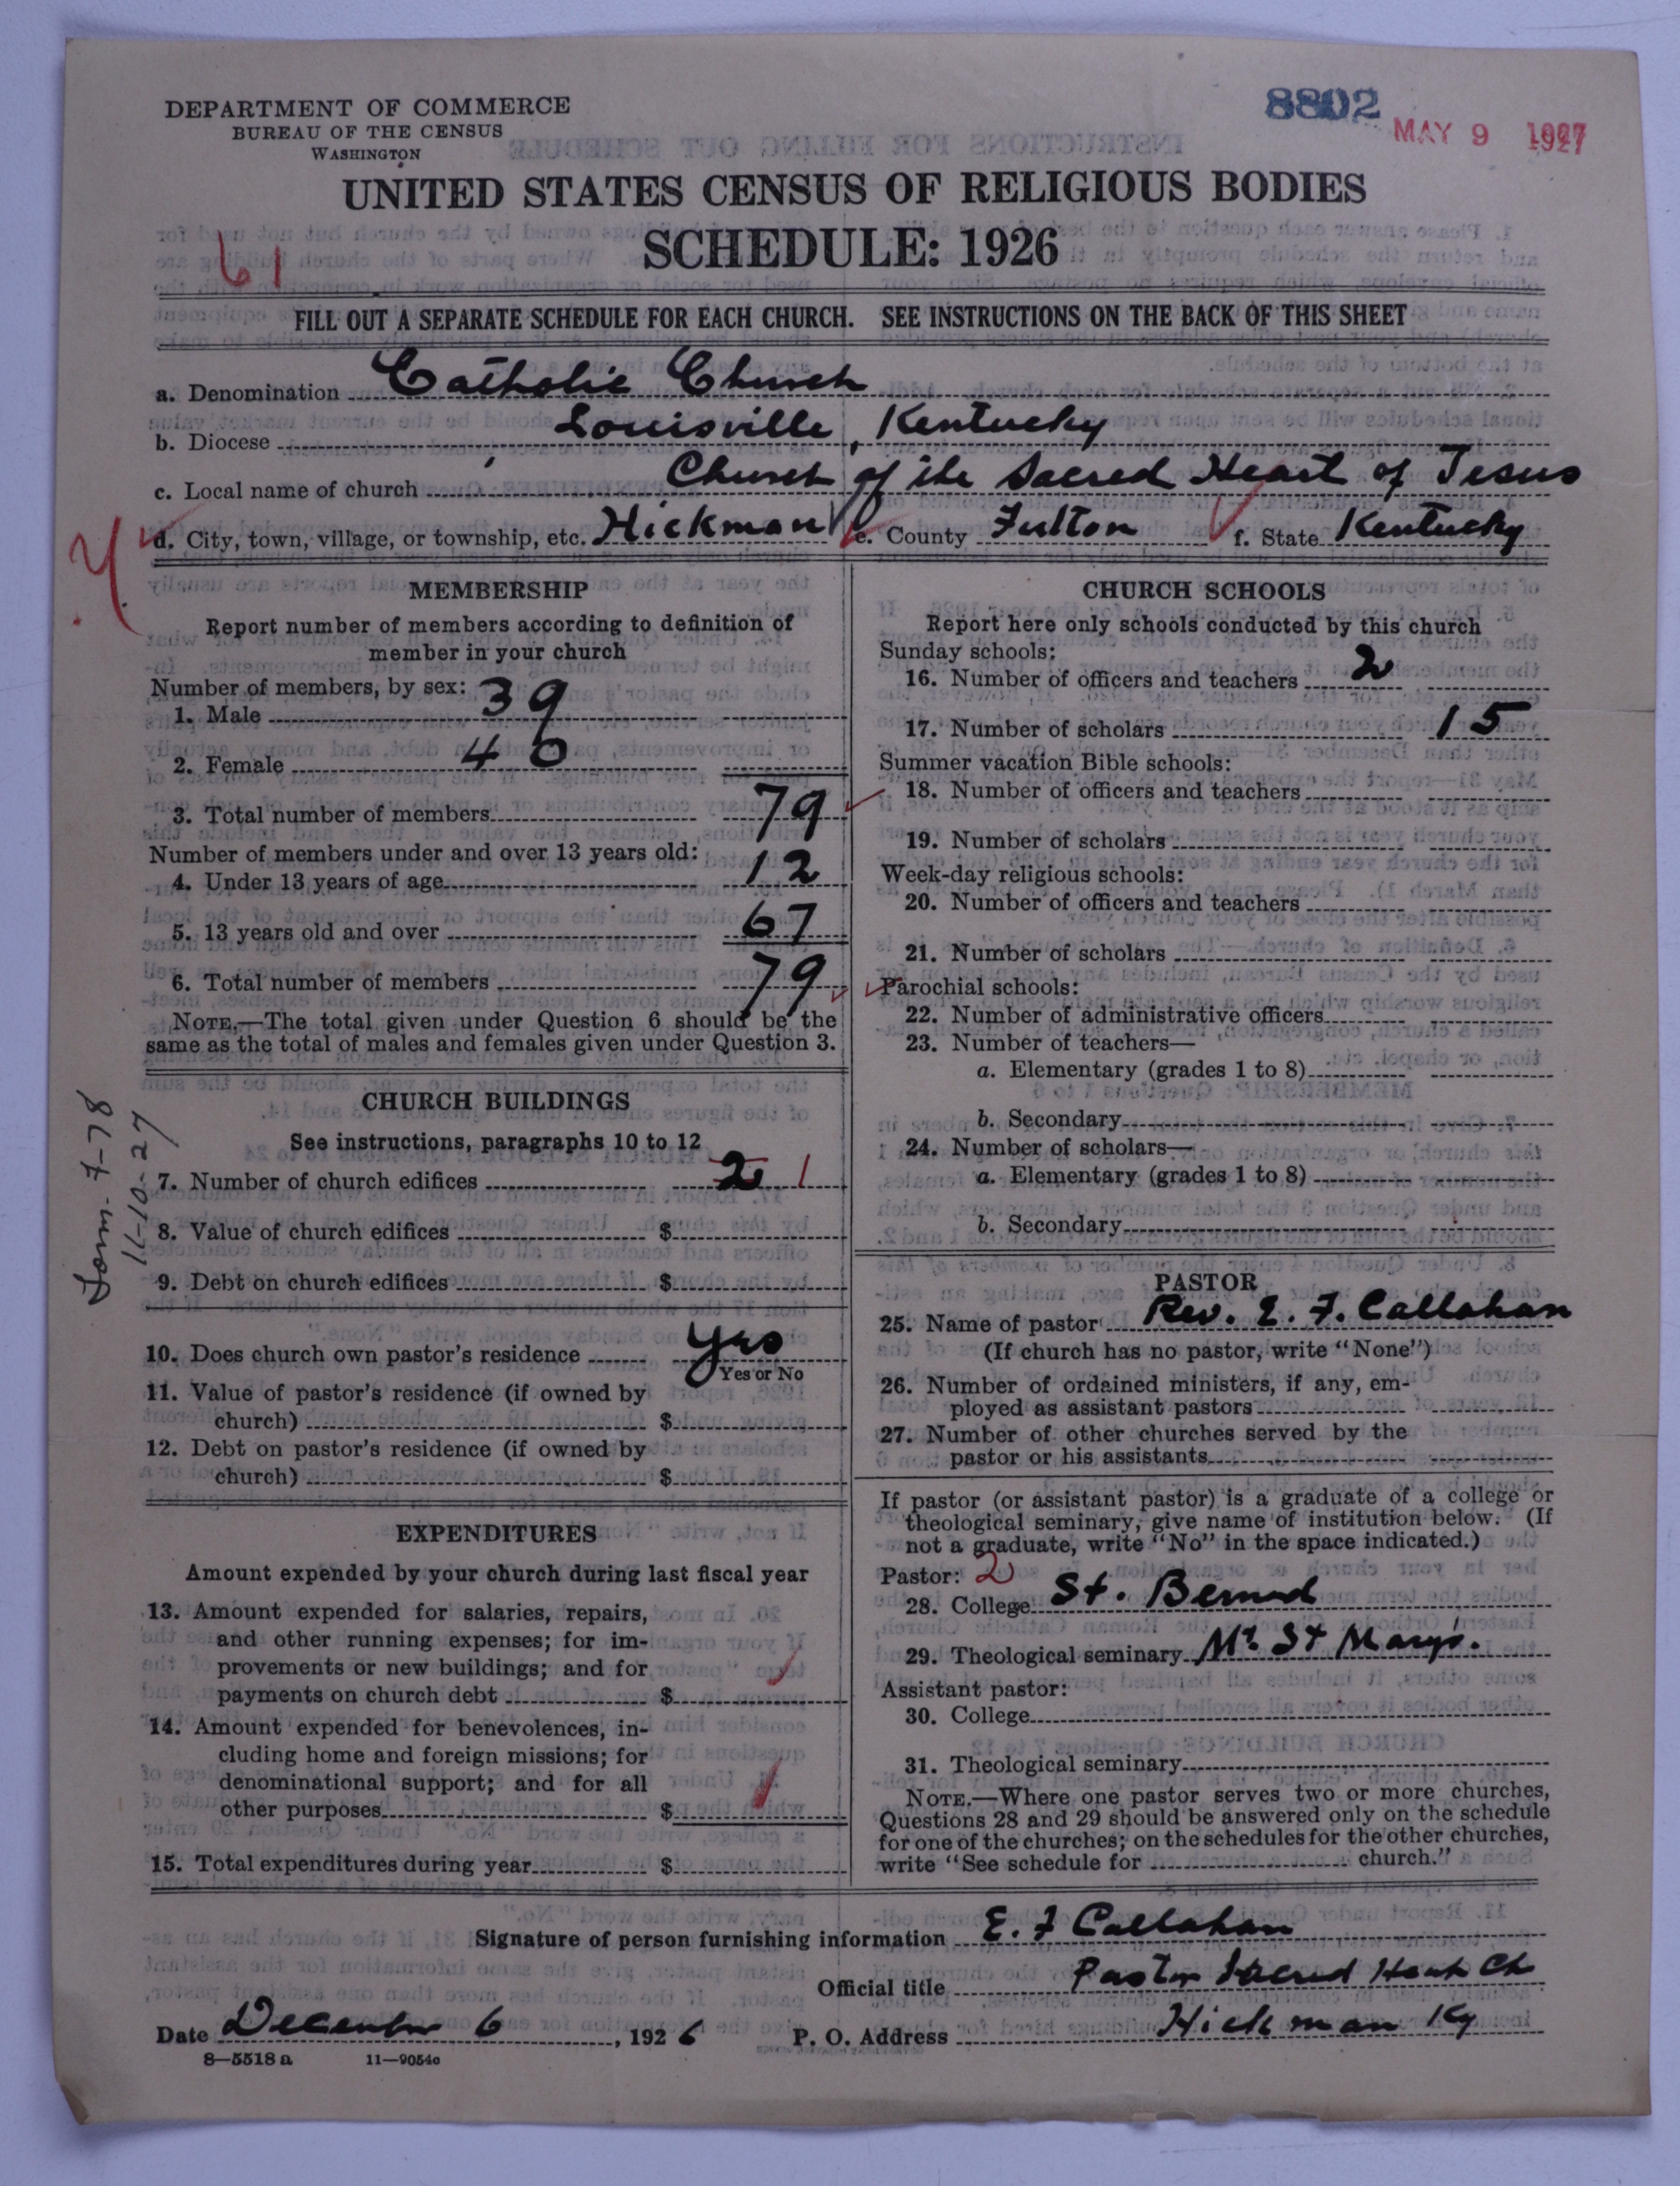 DEPARTMENT OF COMMERCE
BUREAU OF THE CENSUS
WASHINGTON
8802
MAY 9 1927
UNITED STATES CENSUS OF RELIGIOUS BODIES
SCHEDULE: 1926
61
FILL OUT A SEPARATE SCHEDULE FOR EACH CHURCH. SEE INSTRUCTIONS ON THE BACK OF THIS SHEET
a. Denomination Catholic Church
b. Diocese Louisville, Kentucky
c. Local name of church Church of the Sacred Heart of Jesus
d. City, town, village, or township, etc. Hickman e. County Fulton f. State Kentucky
MEMBERSHIP
Report number of members according to definition of
member in your church
Number of members, by sex:
1. Male 39
2. Female 40
3. Total number of members 79
Number of members under and over 13 years old:
4. Under 13 years of age 12
5. 13 years old and over 67
6. Total number of members 79
NOTE.—The total given under Question 6 should be the
same as the total of males and females given under Question 3.
CHURCH BUILDINGS
See instructions, paragraphs 10 to 12
7. Number of church edifices 2 1
8. Value of church edifices $
9. Debt on church edifices $
10. Does church own pastor's residence yes
Yes or No
11. Value of pastor's residence (if owned by
church) $
12. Debt on pastor's residence (if owned by
church) $
EXPENDITURES
Amount expended by your church during last fiscal year
13. Amount expended for salaries, repairs,
and other running expenses; for im-
provements or new buildings; and for
payments on church debt $
14. Amount expended for benevolences, in-
cluding home and foreign missions; for
denominational support; and for all
other purposes $
15. Total expenditures during year $
11-10-27
CHURCH SCHOOLS
Report here only schools conducted by this church
Sunday schools:
16. Number of officers and teachers 2
17. Number of scholars 15
Summer vacation Bible schools:
18. Number of officers and teachers
19. Number of scholars
Week-day religious schools:
20. Number of officers and teachers
21. Number of scholars
Parochial schools:
22. Number of administrative officers
23. Number of teachers—
a. Elementary (grades 1 to 8)
b. Secondary
24. Number of scholars—
a. Elementary (grades 1 to 8)
b. Secondary
PASTOR
25. Name of pastor Rev. E. F. Callahan
(If church has no pastor, write "None")
26. Number of ordained ministers, if any, em-
ployed as assistant pastors
27. Number of other churches served by the
pastor or his assistants
If pastor (or assistant pastor) is a graduate of a college or
theological seminary, give name of institution below. (If
not a graduate, write "No" in the space indicated.)
Pastor: 2
28. College St. Bernard
29. Theological seminary Mt. St Mary's.
Assistant pastor:
30. College
31. Theological seminary
NOTE.—Where one pastor serves two or more churches,
Questions 28 and 29 should be answered only on the schedule
for one of the churches; on the schedules for the other churches,
write "See schedule for church."
Signature of person furnishing information E. F Callahan
Official title Pastor Sacred Heart Ch
Date December 6, 1926 P. O. Address Hickman Ky
8—5518 a 11—9054c